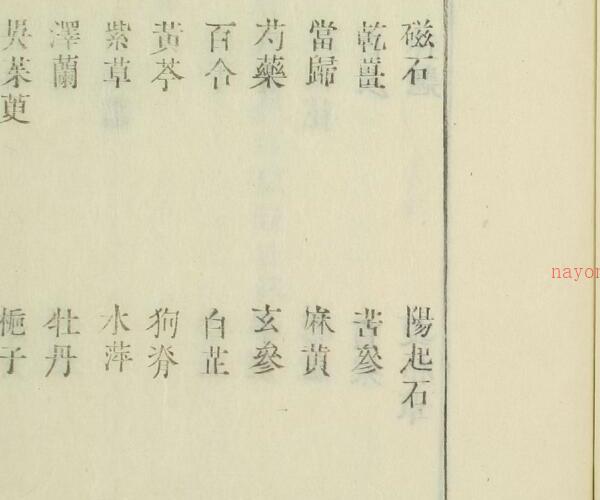 磁石 陽起石
乾薑 苦參
當歸 麻黄
芍藥 玄參
百合 白芷
黃芩 狗脊
紫草 水萍
澤蘭 牡丹
吳茱萸 梔子
nayon